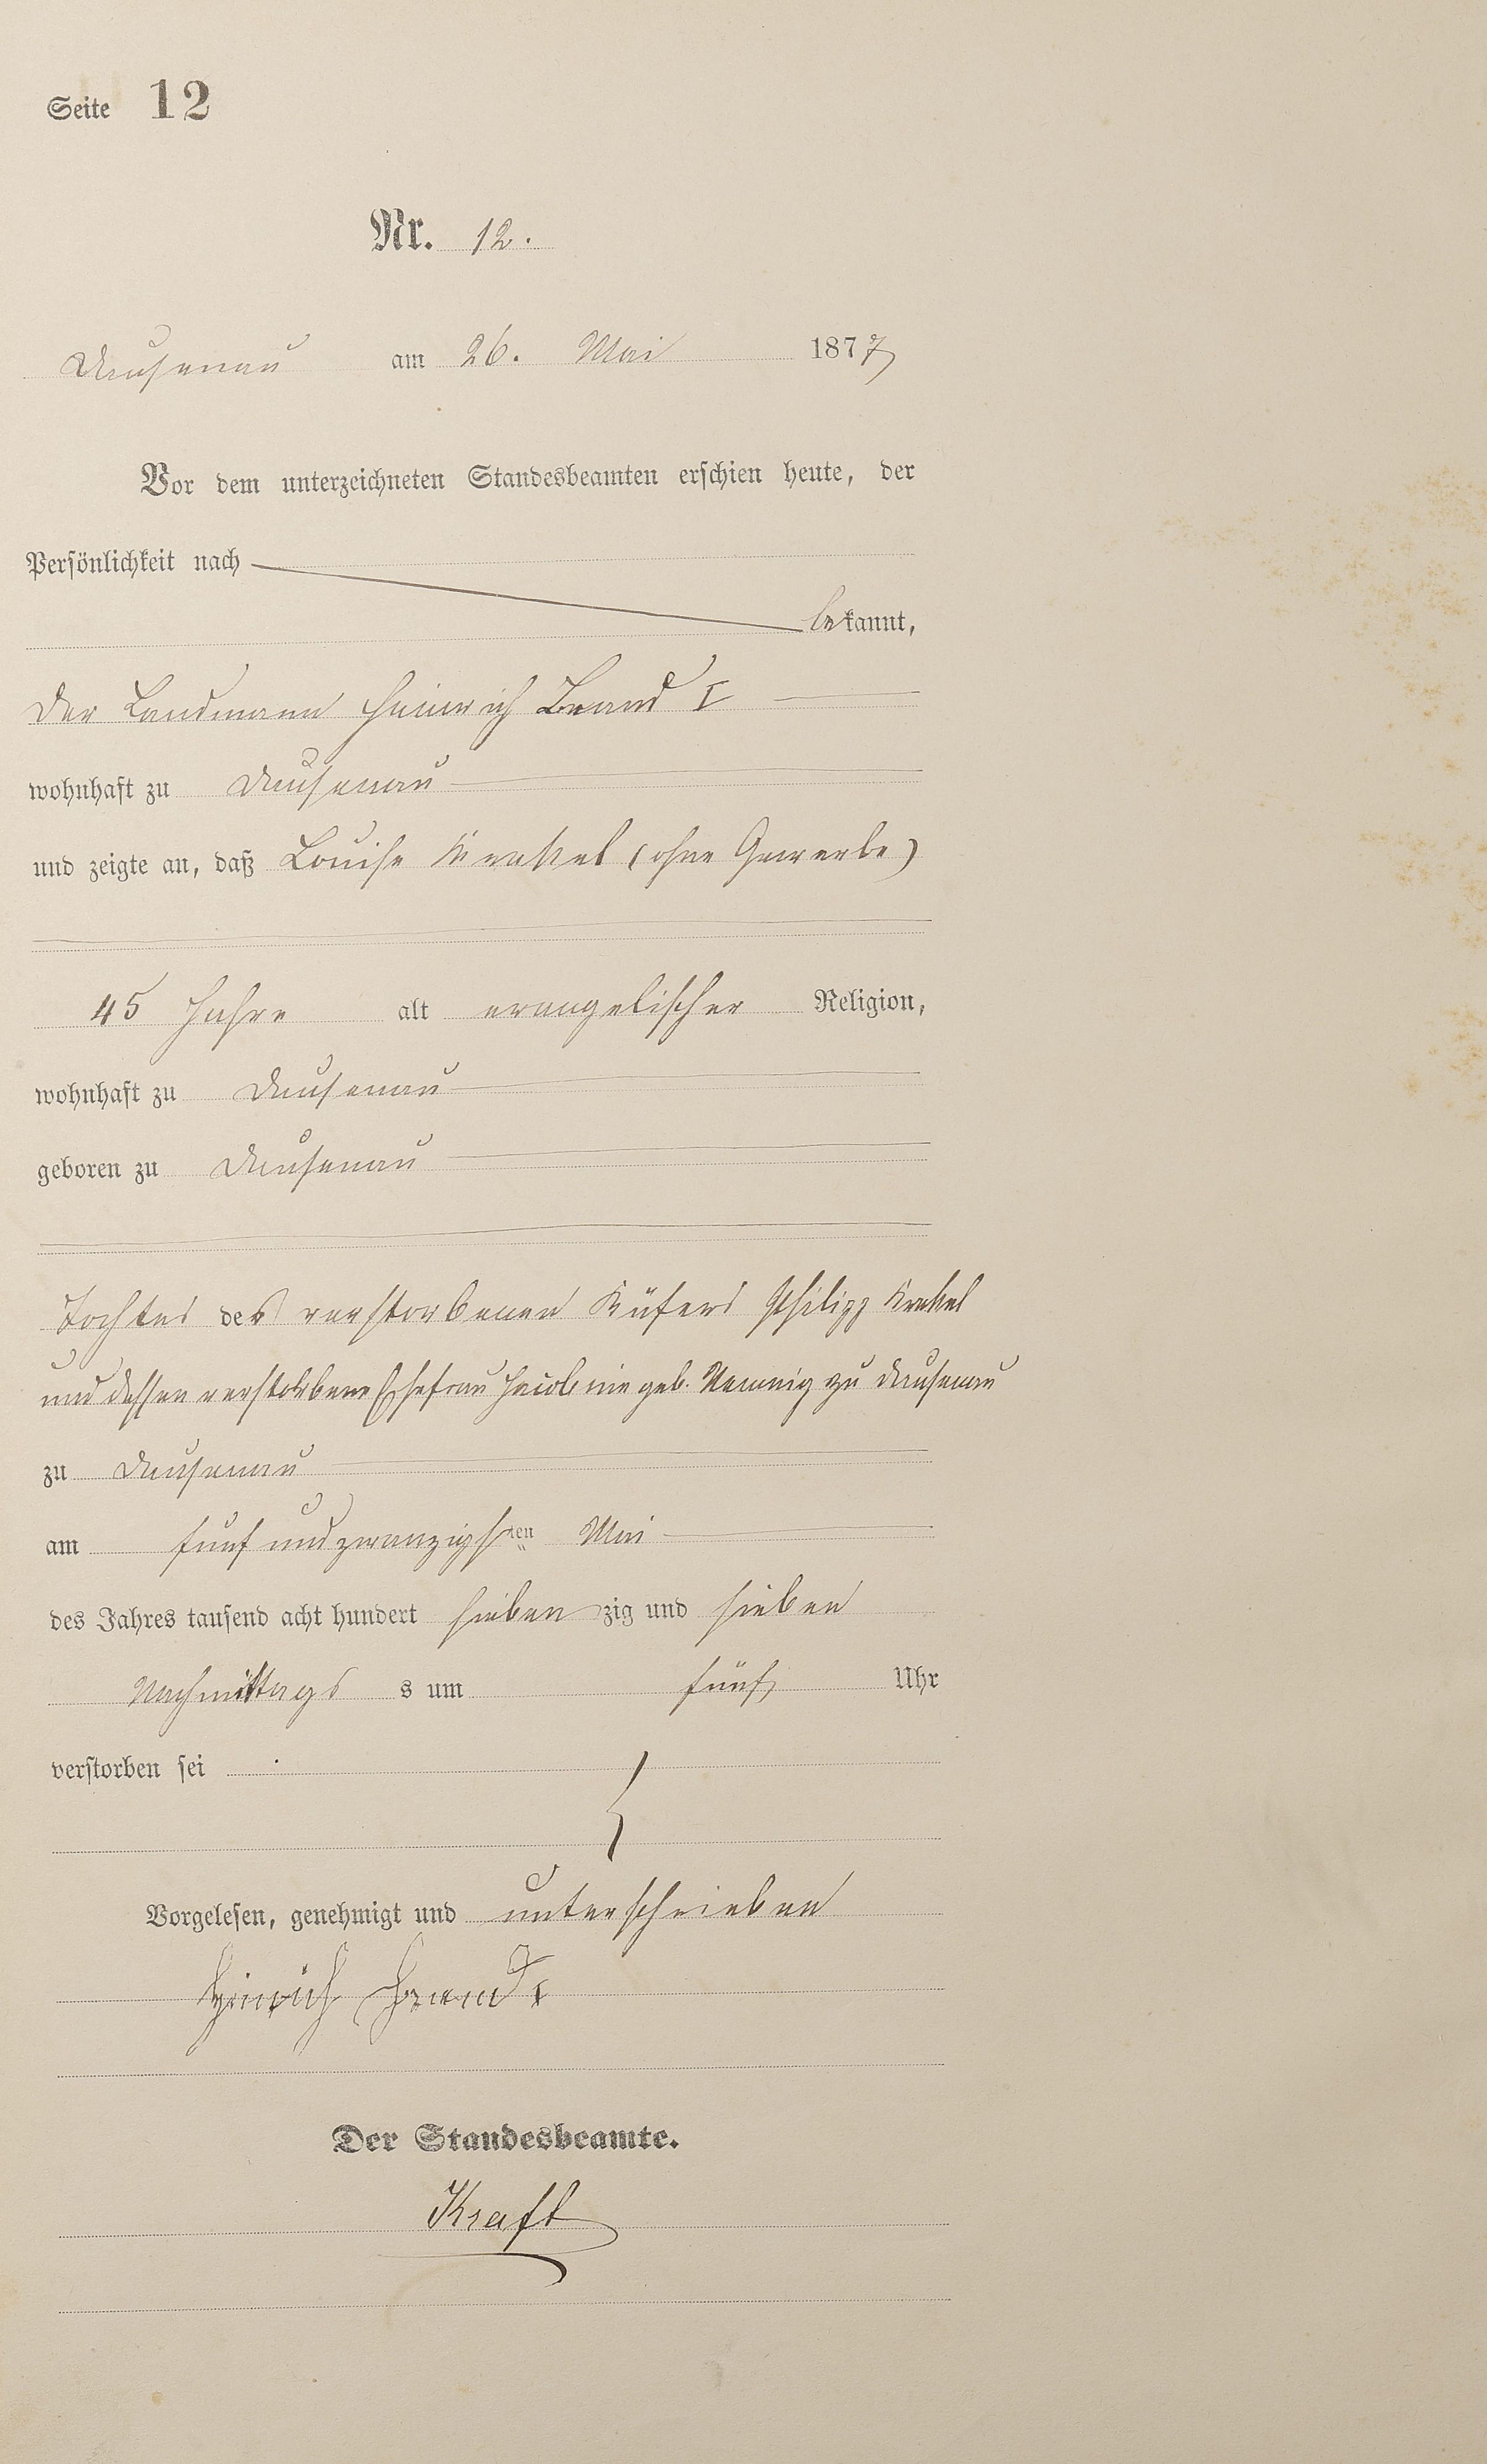 Seite 12
Nr. 12.
Dausenau am 26. Mai 1877
Vor dem unterzeichneten Standesbeamten erschien heute, der
Persönlichkeit nach
bekannt,
Der Landmann Heinrich Brand I
wohnhaft zu Dausenau
und zeigte an, daß Louise Krekel (ohne Gewerbe)
45 Jahre alt evangelischer Religion,
wohnhaft zu Dausenau
geboren zu Dausenau
Tochter des verstorbenen Küfers Philipp Krekel
und dessen verstorbene Ehefrau Jacobine geb. zu Dausenau
zu Dausenau
am fünf und zwanzigsten Mai
des Jahres tausend acht hundert sieben zig und sieben
Nachmittags s um fünf Uhr
verstorben sei
Vorgelesen, genehmigt und unterschrieben
Heinrich Brand I
Der Standesbeamte.
Kraft